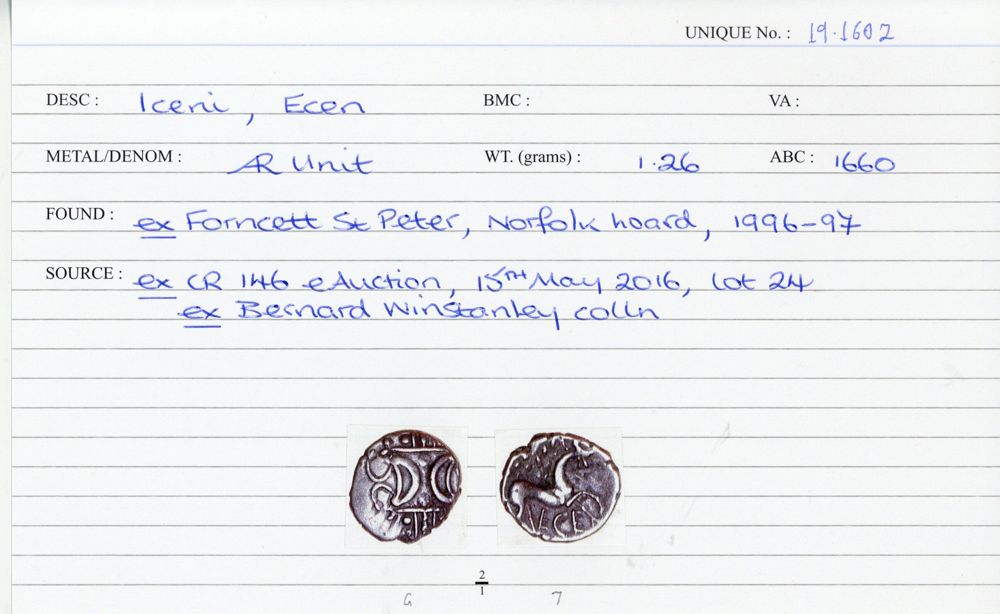 UNIQUE No. : 19.1602
DESC : Iceni, Ecen BMC : VA :
METAL/DENOM : AR Unit WT. (grams) : 1.26 ABC : 1660
FOUND : ex Forncett St Peter, Norfolk hoard, 1996-97
SOURCE : ex CR 146 eAuction, 15TH May 2016, lot 24
ex Bernard Winstanley colln
2
1
6 7